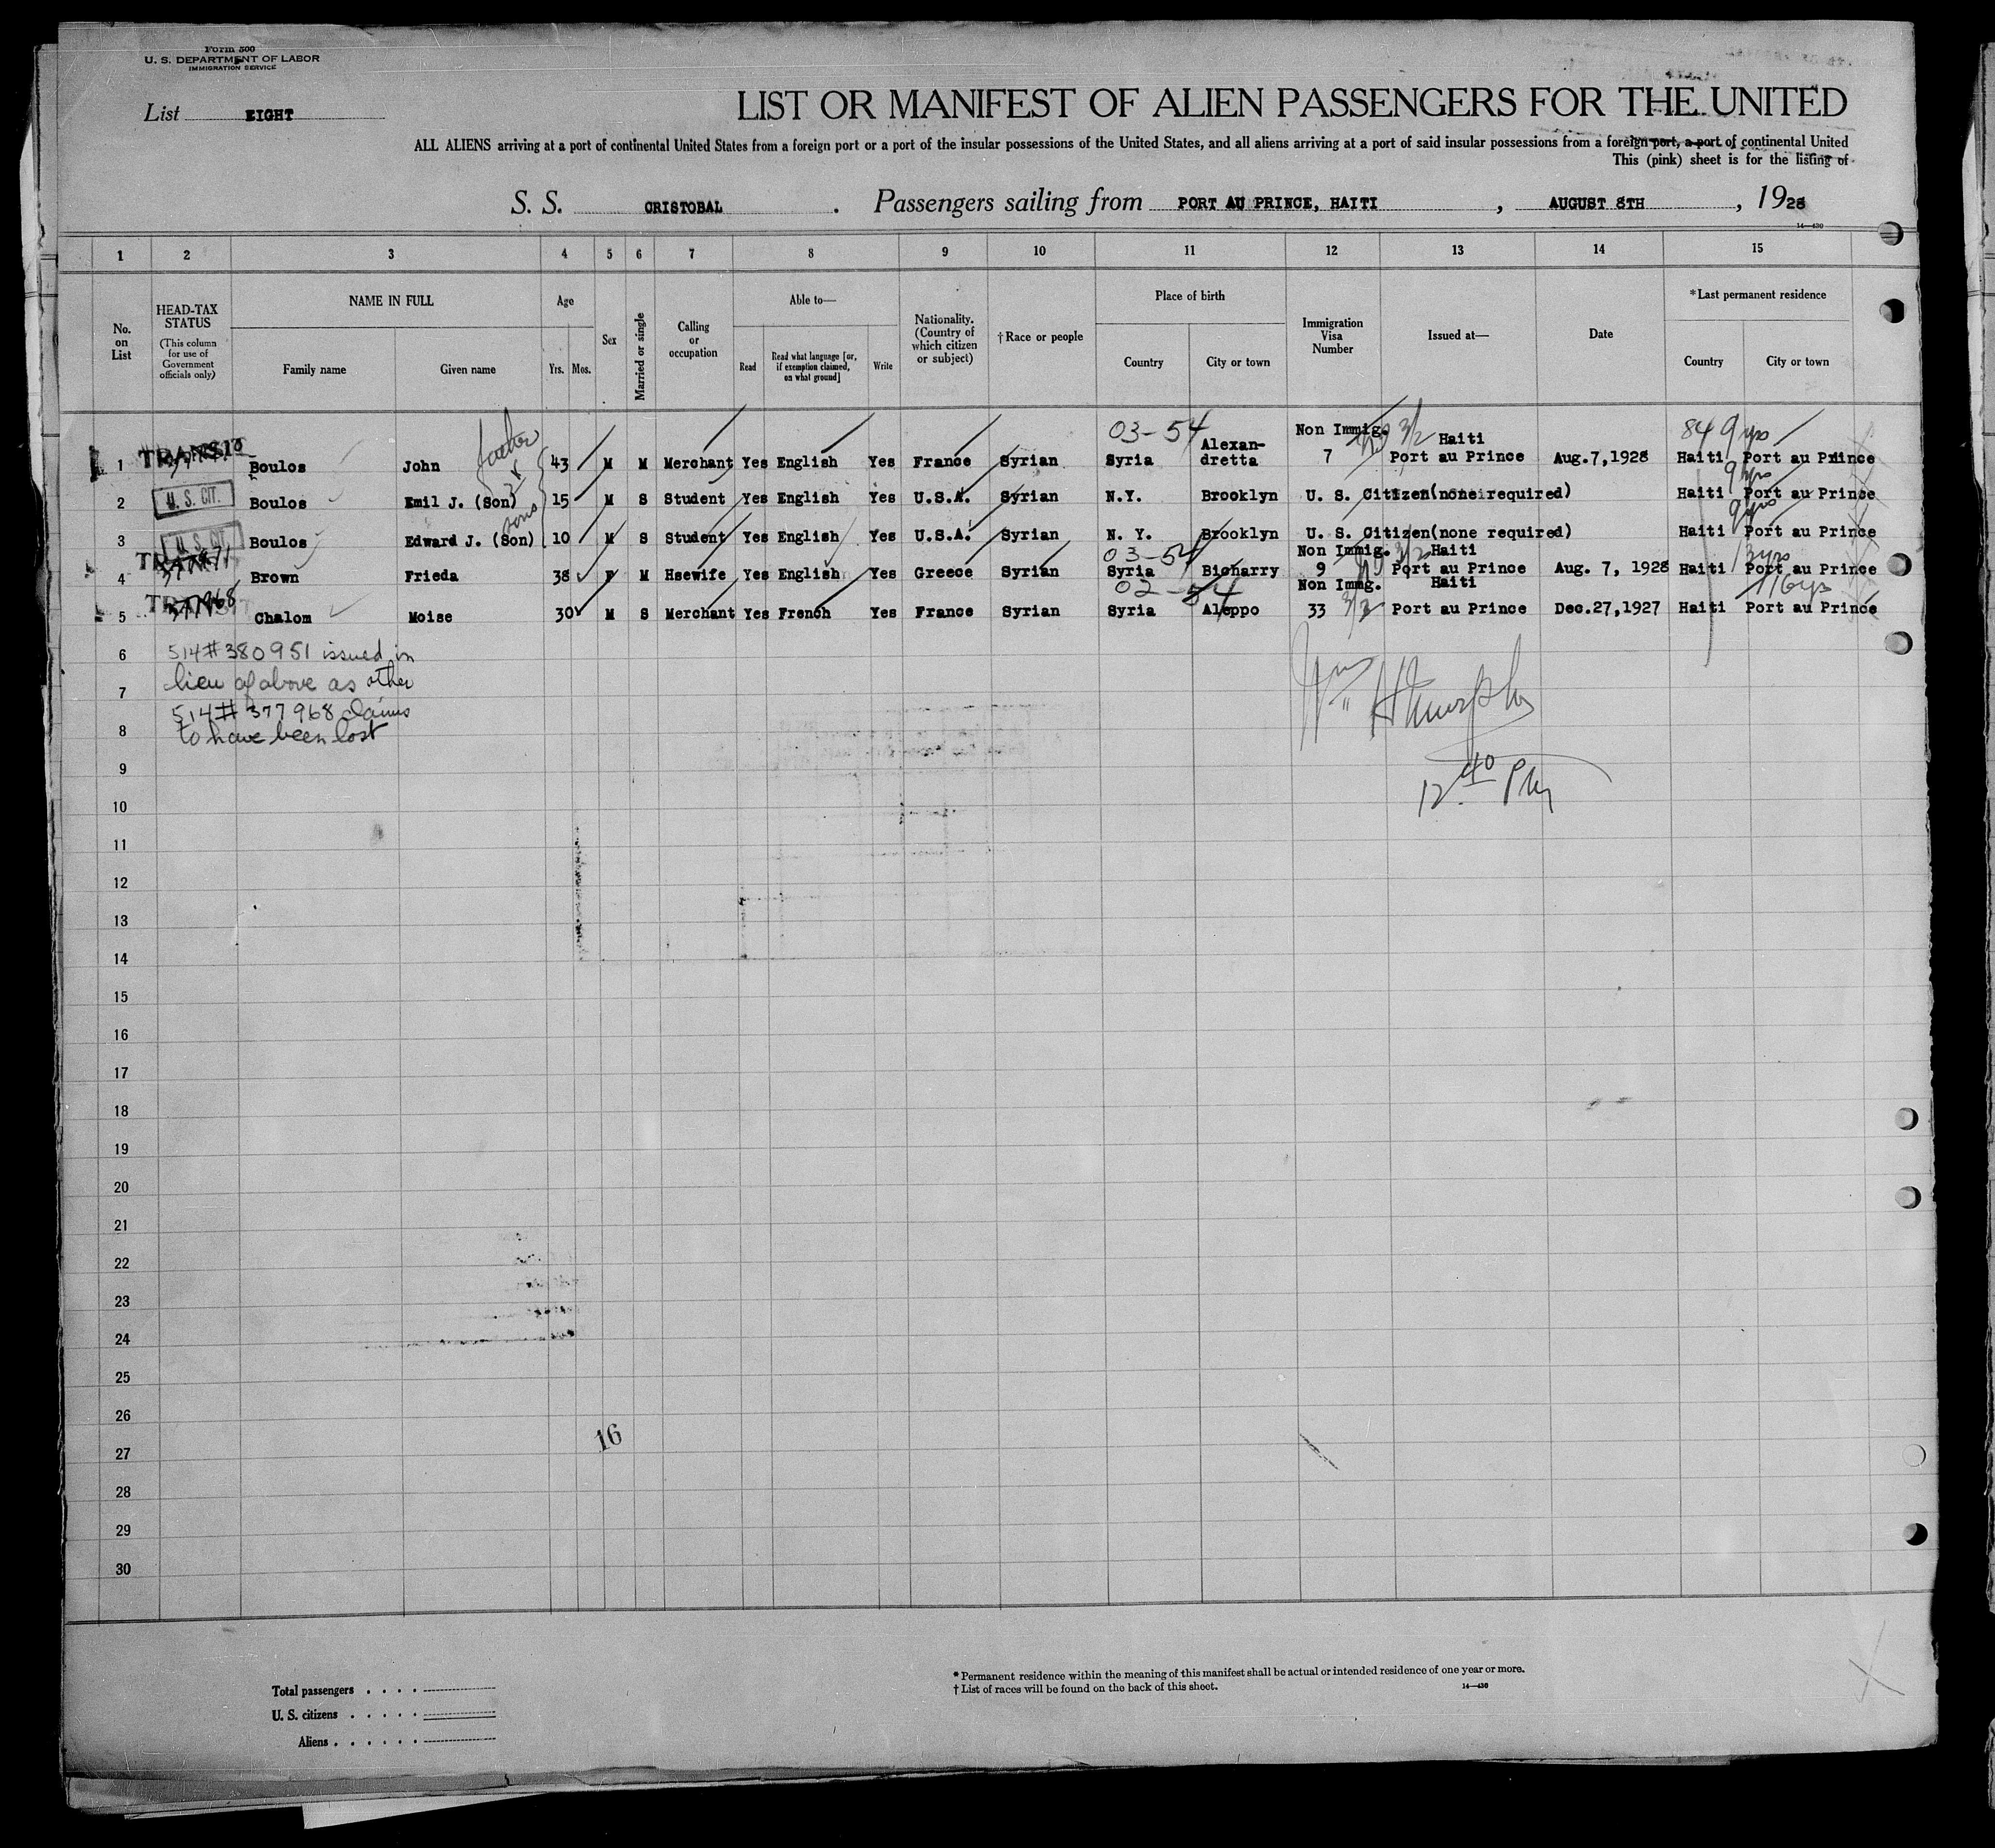 Form 500
U. S. DEPARTMENT OF LABOR
IMMIGRATION SERVICE
List EIGHT
LIST OR MANIFEST OF ALIEN PASSENGERS FOR THE UNITED
ALL ALIENS arriving at a port of continental United States from a foreign port or a port of the insular possessions of the United States, and all aliens arriving at a port of said insular possessions from a foreign port, a port of continental United
This (pink) sheet is for the listing of
S. S. CRISTOBAL. Passengers sailing from PORT AU PRINCE, HAITI, AUGUST 8TH, 1928
14—430
1 2 3 4 5 6 7 8 9 10 11 12 13 14 15
No. on List
HEAD-TAX STATUS
(This column for use of Government officials only)
NAME IN FULL
Family name Given name
Age
Yrs. Mos.
Sex
Married or single
Calling or occupation
Able to—
Read
Read what language [or, if exemption claimed, on what ground]
Write
Nationality. (Country of which citizen or subject)
† Race or people
Place of birth
Country City or town
Immigration Visa Number
Issued at—
Date
* Last permanent residence
Country City or town
03-54 Non Immig. 3/2 Haiti 84 9 yrs
1 TRANSIT Boulos John father 43 M M Merchant Yes English Yes France Syrian Syria Alexan-dretta 7 Port au Prince Aug.7,1928 Haiti Port au Prince
9 yrs
2 U. S. CIT. Boulos Emil J. (Son) 15 M S Student Yes English Yes U.S.A. Syrian N.Y. Brooklyn U. S. Citizen(none required) Haiti Port au Prince
sons 9 yrs
3 U. S. CIT. Boulos Edward J. (Son) 10 M S Student Yes English Yes U.S.A. Syrian N. Y. Brooklyn U. S. Citizen(none required) Haiti Port au Prince
03-54 Non Immig. 3/2 Haiti 13 yrs
4 Brown Frieda 38 F M Hsewife Yes English Yes Greece Syrian Syria Bicharry 9 Port au Prince Aug. 7, 1928 Haiti Port au Prince
02-54 Non Immg. Haiti 16 yrs
5 377968 Chalom Moise 30 M S Merchant Yes French Yes France Syrian Syria Aleppo 33 3/2 Port au Prince Dec.27,1927 Haiti Port au Prince
6 514# 380951 issued in
7 lieu of above as other
514# 377968 claims
8 to have been lost
Wm H Murphy
9
12 40 PM
10
11
12
13
14
15
16
17
18
19
20
21
22
23
24
25
26
16
27
28
29
30
Total passengers
U. S. citizens
Aliens
* Permanent residence within the meaning of this manifest shall be actual or intended residence of one year or more.
† List of races will be found on the back of this sheet.
14—430